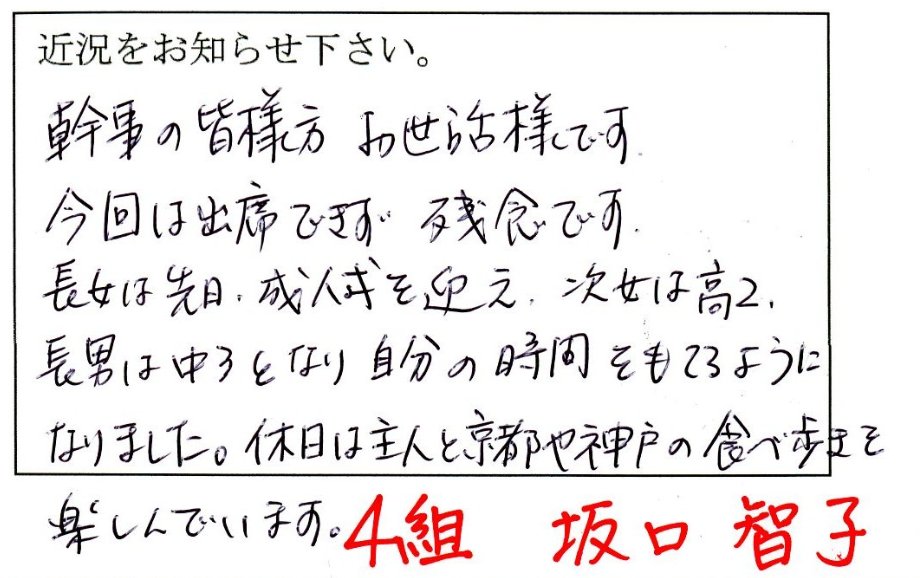 近況をお知らせ下さい。
幹事の皆様方 お世話様です.
今回は出席できず 残念です.
長女は先日、成人式を迎え、次女は高2、
長男は中3となり 自分の時間をもてるように
なりました。休日は主人と京都や神戸の食べ歩きを
楽しんでいます。4組 坂口 智子